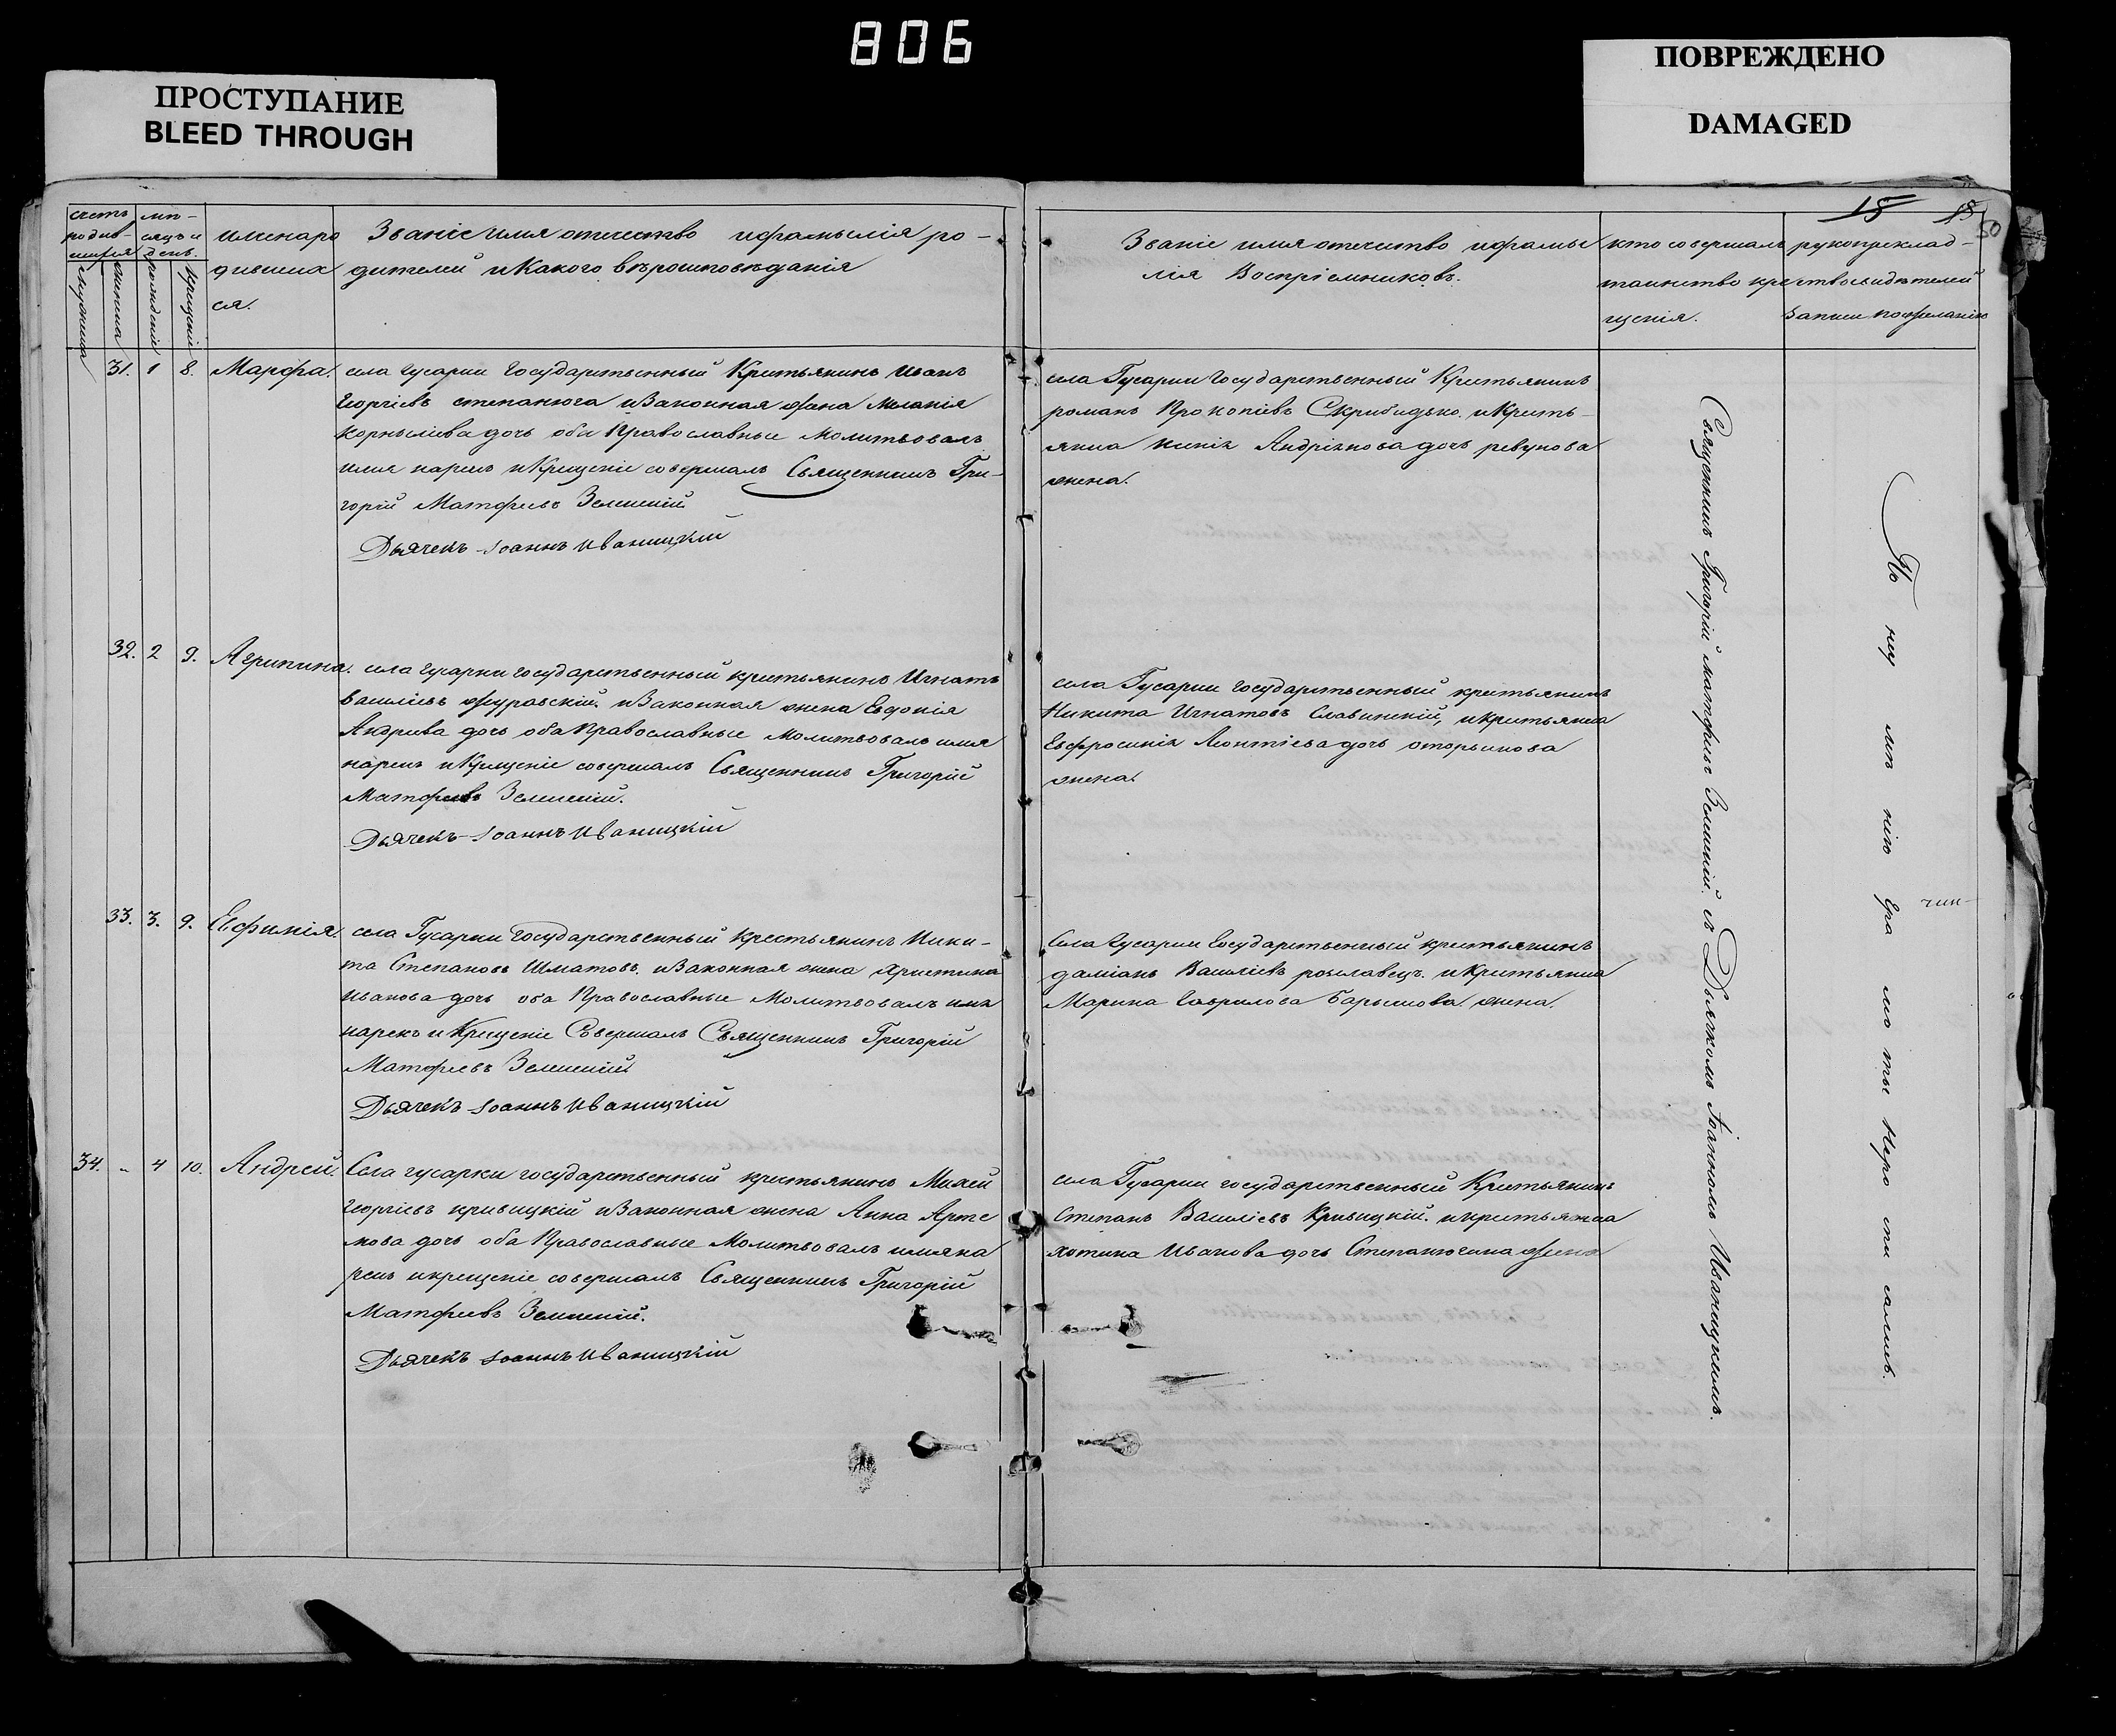 806
ПРОСТУПАНИЕ
BLEED THROUGH
ПОВРЕЖДЕНО
DAMAGED
18 50
счетъ родив-шихся
мужеска
женска
мѣ-сяцъ и день.
рожденіе
крещеніе
имена ро
дивших
ся.
Званіе имя отечество ифамылія ро-
дителей и Какого вѣроисповѣданія
Званіе имя отечество ифамы
лія Воспріемниковъ.
кто совершалъ
таинство кре
щенія.
рукоприклад-
ство свидѣтелей
Записи пожеланію
31. 1 8. Марфа.
села гусарки Государственный Крестьянинъ Иванъ
Георгіевъ степанюга иЗаконная жена Меланія
Корныліева дочь оба Православные Молитвовалъ
имя нарекъ иКрещеніе совершалъ Священникъ Гри-
горій Матфеевъ Зелинскій
Дьячекъ Іоаннъ Иваницкій
села Гусарки Государственный Крестьянинъ
романъ Прокопіевъ Скрибидько. иКресть-
янка Андріянова дочь ревунова
жена.
32. 2 9. Агрипина.
села гусарки государственный крестьянинъ Игнатъ
Василіевъ Журавскій. иЗаконная жена Евдокія
Андреева дочь оба Православные Молитвовалъ имя
нарекъ иКрещеніе совершалъ Священникъ Григорій
Матфеевъ Зелинскій.
Дьячекъ Іоаннъ Иваницкій
села Гусарки Государственный крестьянинъ
Никита Игнатовъ Славинскій, икрестьянка
Евфросинія Леонтіева дочь
жена.
33. 3. 9. Евфимія.
села Гусарки Государственный крестьянинъ Ники-
та Степановъ Шматовъ. иЗаконная жена Христина
Иванова дочь оба Православные Молитвовалъ имя
нарекъ и Крещеніе Совершалъ Священникъ Григорій
Матфеевъ Зелинскій
Дьячекъ Іоаннъ Иваницкій
Села гусарки Государственный крестьянинъ
даміанъ Василіевъ рославецъ. иКрестьянка
Марина Гаврилова Барышова. жена.
34. - 4 10. Андрей.
Села гусарки государственный крестьянинъ Михей
Георгіевъ кривицкій иЗаконная жена Анна Арте
мова дочь оба Православные Молитвовалъ имяна
рекъ икрещеніе совершалъ Священникъ Григорій
Матфеевъ Зелинскій.
Дьячекъ Іоаннъ Иваницкій
села Гусарки государственный Крестьянинъ
Степанъ Василіевъ Кривицкій. икрестьянка
хотина Иванова дочь Степанюгина жена
Священникъ Григорій матфеевъ Зелинскій. съ Дьячкомъ Іоанномъ Иваницкимъ.